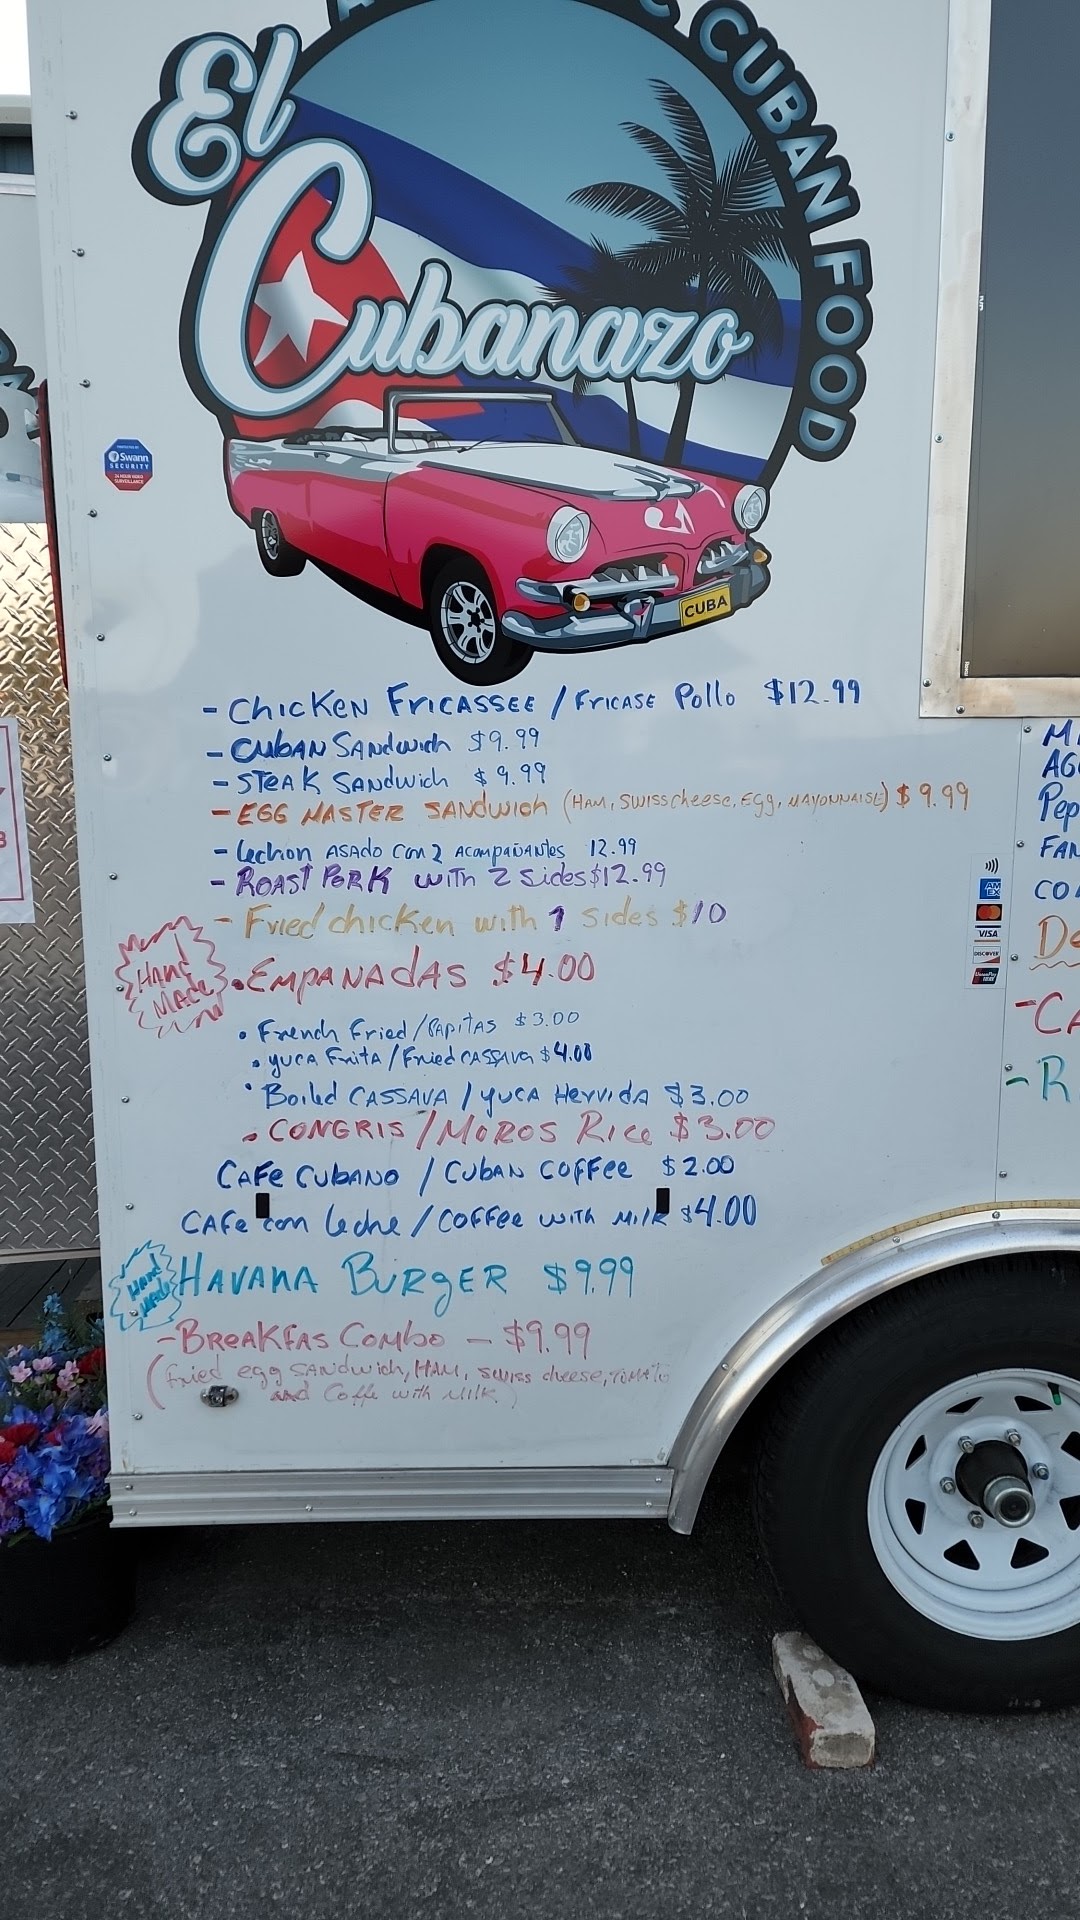 El
Cubanazo
CUBAN FOOD
Swann
SECURITY
CUBA
- CHICKEN FRICASSEE / FRICASE Pollo $12.99
- CUBAN SANdwich $9.99
- STEAK SANDwich $9.99
- EGG MASTER SANDwich (HAM, SWISS cheese, Egg, MAYONNAISE) $9.99
- Lechon ASAdo Con 2 AcompAÑANtes 12.99
- ROAST PORK with 2 Sides $12.99
- Fried chicken with 1 Sides $10
HAND MADE
. EMPANAdAS $4.00
. French Fried / PAPITAS $3.00
. YUCA FRITA / Fried CASSAVA $4.00
. Boiled CASSAVA / YUCA HervidA $3.00
. CONGRIS / MOROS Rice $3.00
CAFe CUbANO / CUBAN COFFee $2.00
CAFe con leche / COFFee with Milk $4.00
HAND MADE
HAVANA BURgER $9.99
- BREAKFAS COMbO - $9.99
(Fried egg SANdwich, HAM, SWISS cheese, TOMATO
and Coffe with Milk)
AM EX
VISA
DISCOVER
Pep
FAN
- CA
- R